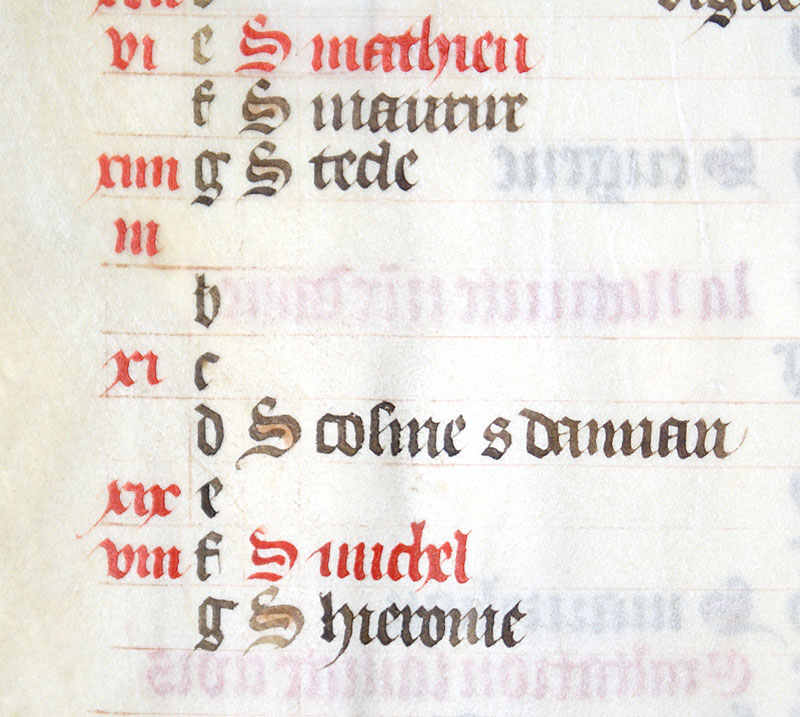 vi e S mathieu
f S maurixe
xiiii g S tecle
iii
b
xi c
d S cosme s damian
xix e
viii f S michel
g S hieronie